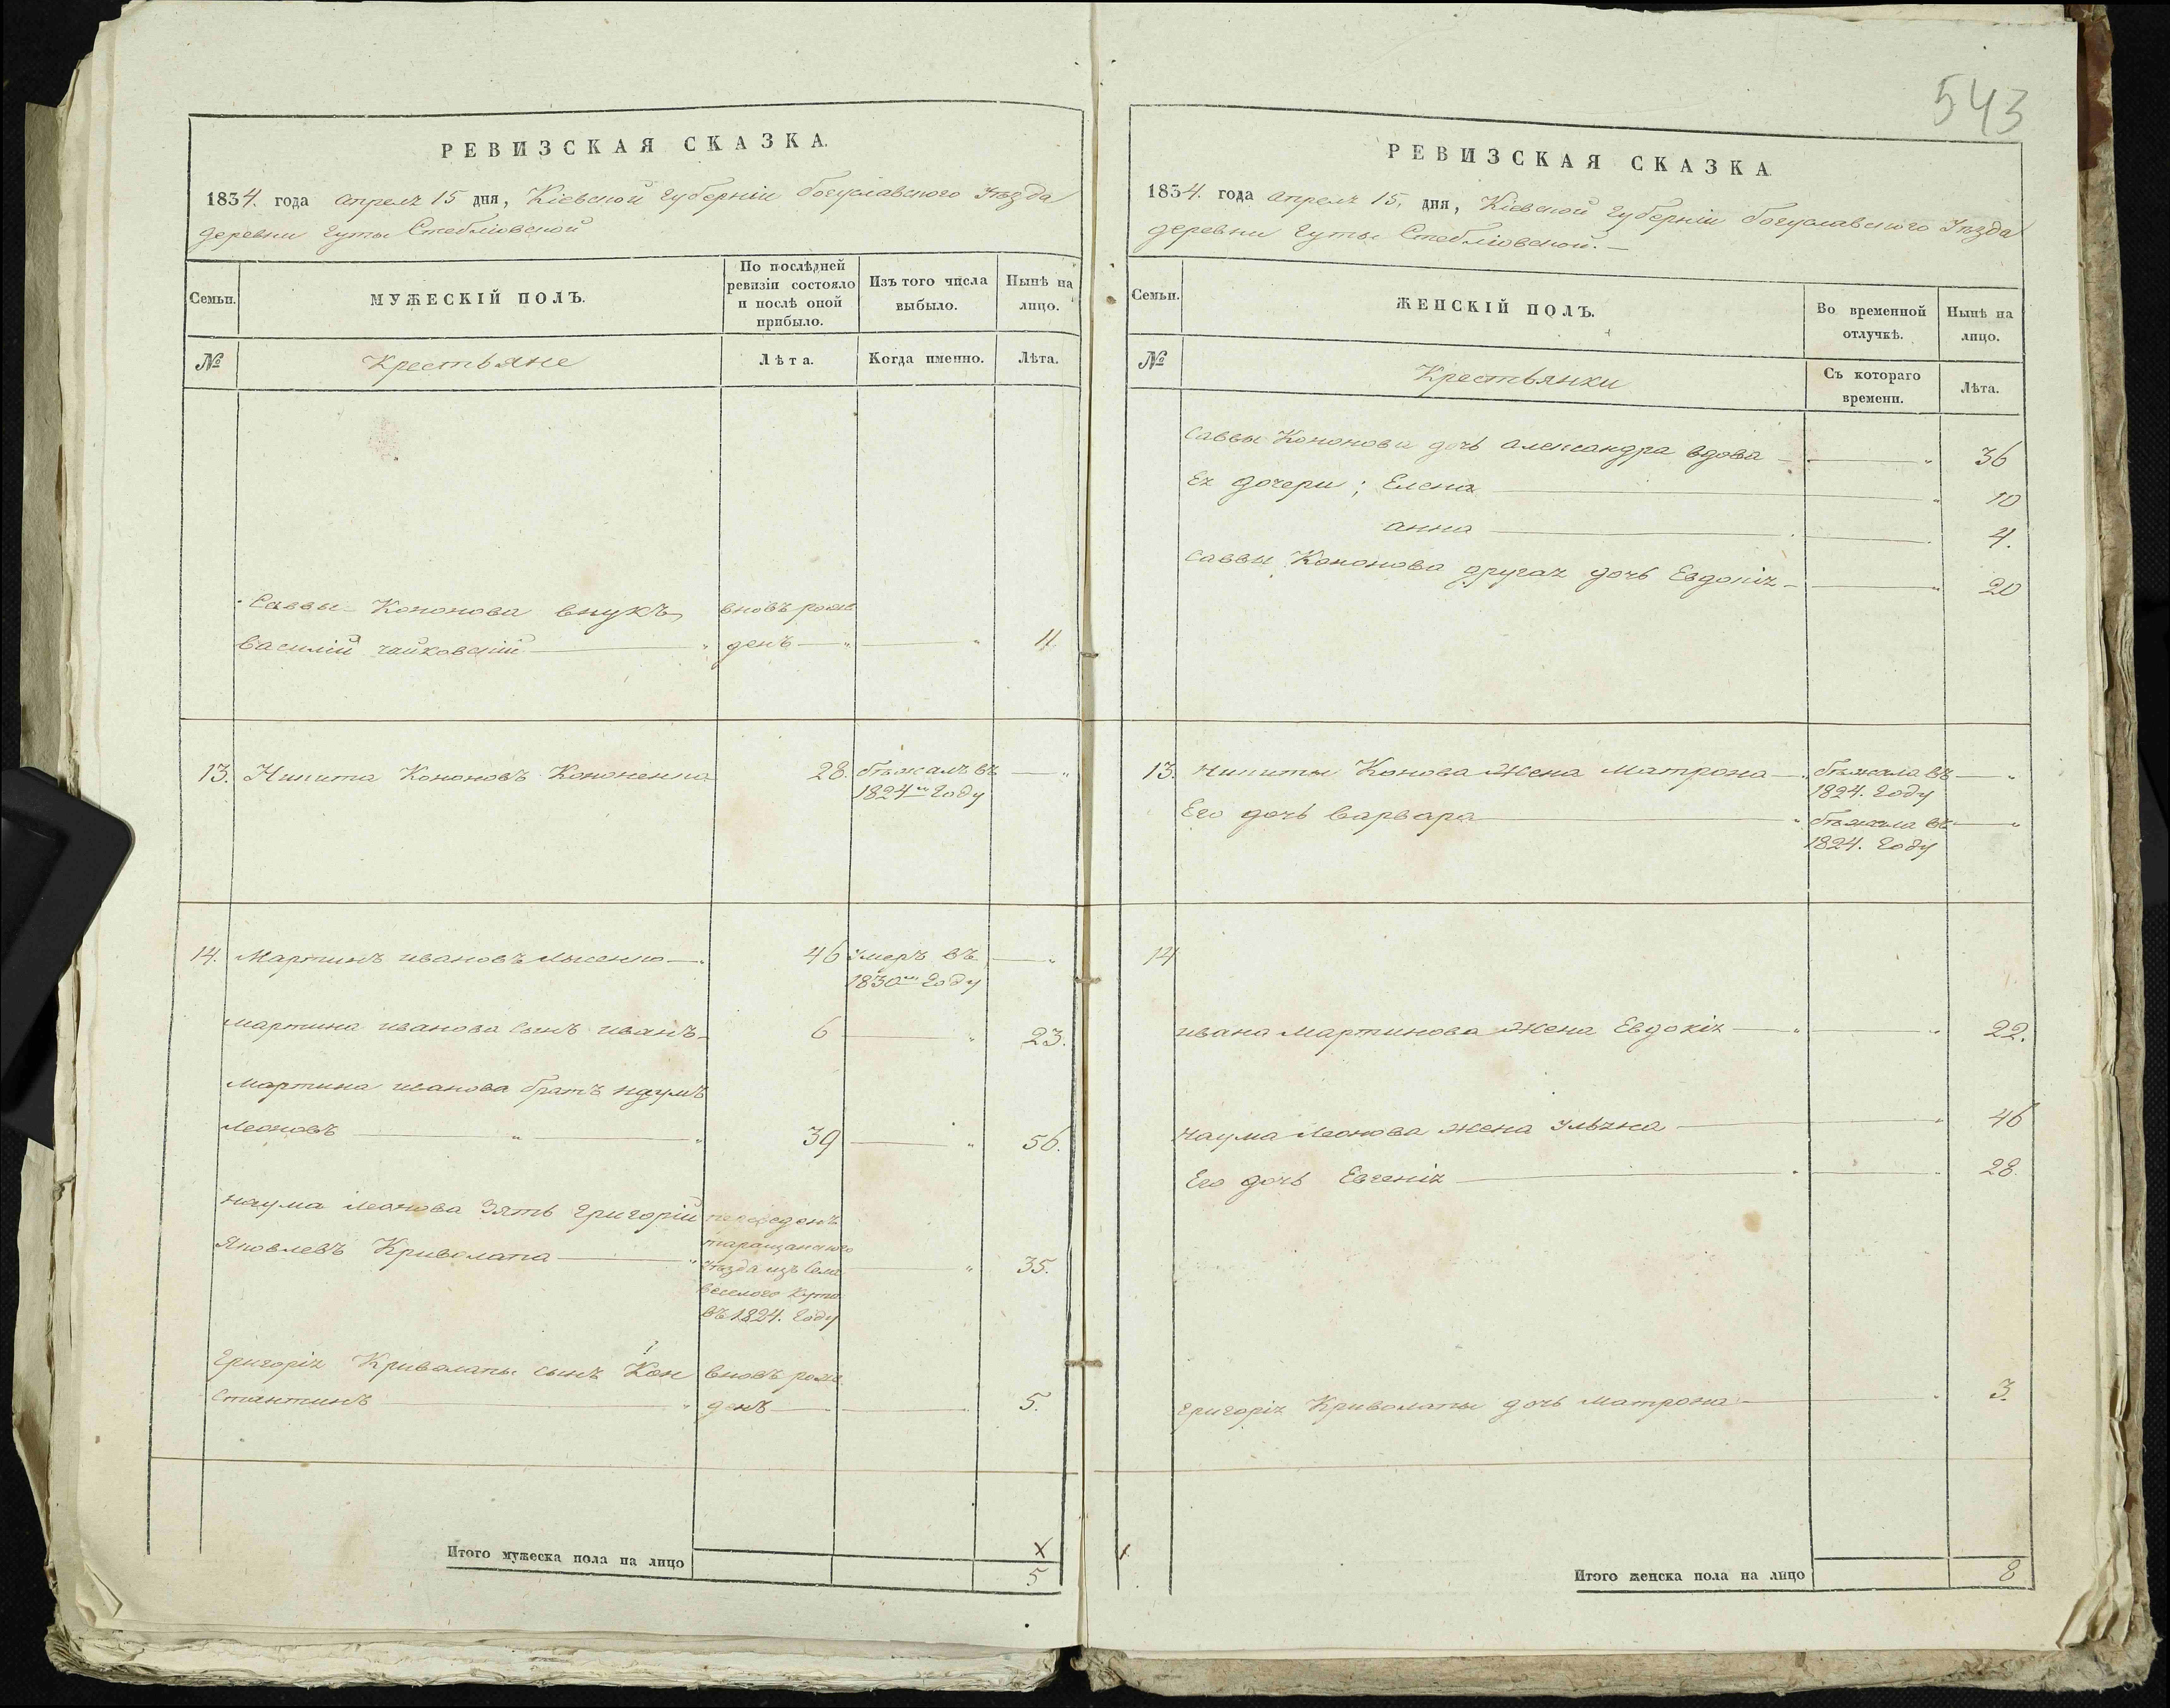 РЕВИЗСКАЯ СКАЗКА.
1834. года Апреля 15 дня, Кіевской Губерніи Богуславского Уѣзда
деревни Гуты Стебліовской
Семьи.
МУЖЕСКІЙ ПОЛЪ.
По послѣдней
ревизіи состояло
и послѣ оной
прибыло.
Изъ того числа
выбыло.
Нынѣ на
лицо.
№
Крестьяне
Лѣта.
Когда именно.
Лѣта.
Саввы Кононова внукъ вновъ рож
Василій Чайковскій денъ 11
13. Никита Кононовъ Кононенко 28. бѣжалъ въ
1824м Году
14. Мартинъ Ивановъ Лысенко 46 Умеръ въ
1830м Году
Мартина Иванова сынъ Иванъ 6 23.
Мартина Иванова братъ Наумъ
Леоновъ 39 56.
Наума Леонова Зять Григорій переведенъ
Яковлевъ Криволапа таращанского
Уѣзда изъ Села 35.
Веселого Кута
въ 1824. Году
Григорія Криволапы сынъ Кон вновъ рож
стантинъ денъ 5.
Итого мужеска пола на лицо
х
5
543
РЕВИЗСКАЯ СКАЗКА
1834. года Апреля 15. дня, Кіевской Губерніи Богуславского Уѣзда
деревни Гуты Стебліовской.
Семьи.
ЖЕНСКІЙ ПОЛЪ.
Во временной
отлучкѣ.
Нынѣ на
лицо.
№
Крестьянки
Съ котораго
времени.
Лѣта.
Саввы Кононова дочь Александра вдова 36
Ея дочери; Елена 10
Анна 4.
Саввы Кононова другая дочь Евдокія 20
13. Никиты Конова Жена Матрона бѣжала въ
1824. Году
Его дочь Варвара бѣжала въ
1824. Году
14
Ивана Мартинова Жена Евдокія 22.
Наума Леонова жена Ульяна 46
Его дочь Евгенія 28.
Григорія Криволапы дочь Матрона 3.
х
Итого женска пола на лицо 8